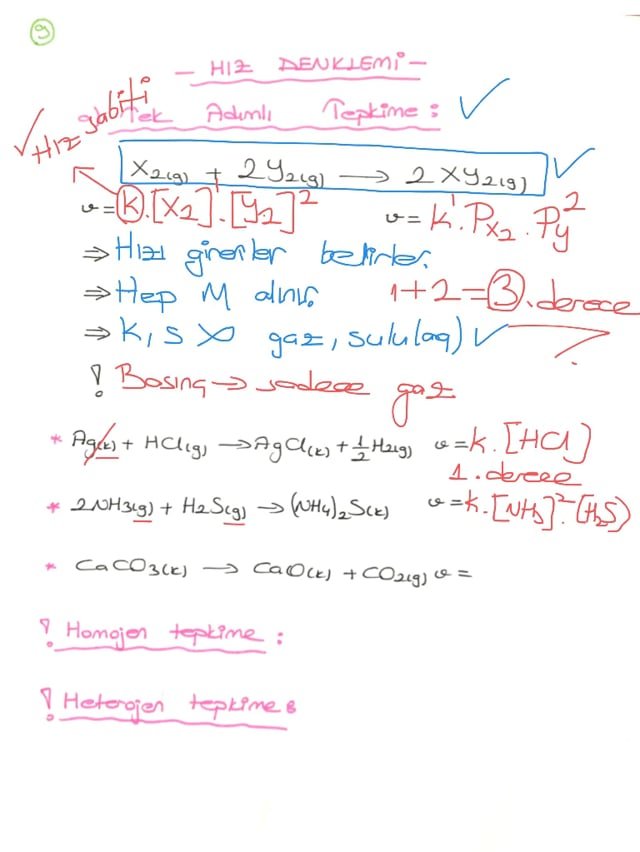 9
- HIZ DENKLEMİ -
Hız sabiti
Tek Adımlı Tepkime:
X₂(g) + 2Y₂(g) → 2XY₂(g)
v = k.[X₂]¹.[Y₂]² v = k'.P_X₂.P_Y²
⇒ Hızı girenler belirler.
⇒ Hep M alınır. 1+2=3.derece
⇒ K, S X gaz, sulu(aq) ?
! Basınç → sadece gaz
* Ag(k) + HCl(g) → AgCl(k) + 1/2 H₂(g) v = k.[HCl]
1.derece
* 2NH₃(g) + H₂S(g) → (NH₄)₂S(k) v = k.[NH₃]².[H₂S]
* CaCO₃(k) → CaO(k) + CO₂(g) v =
! Homojen tepkime :
! Heterojen tepkime :